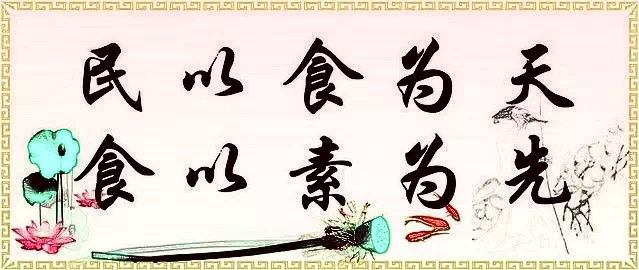 民以食为天
食以素为先